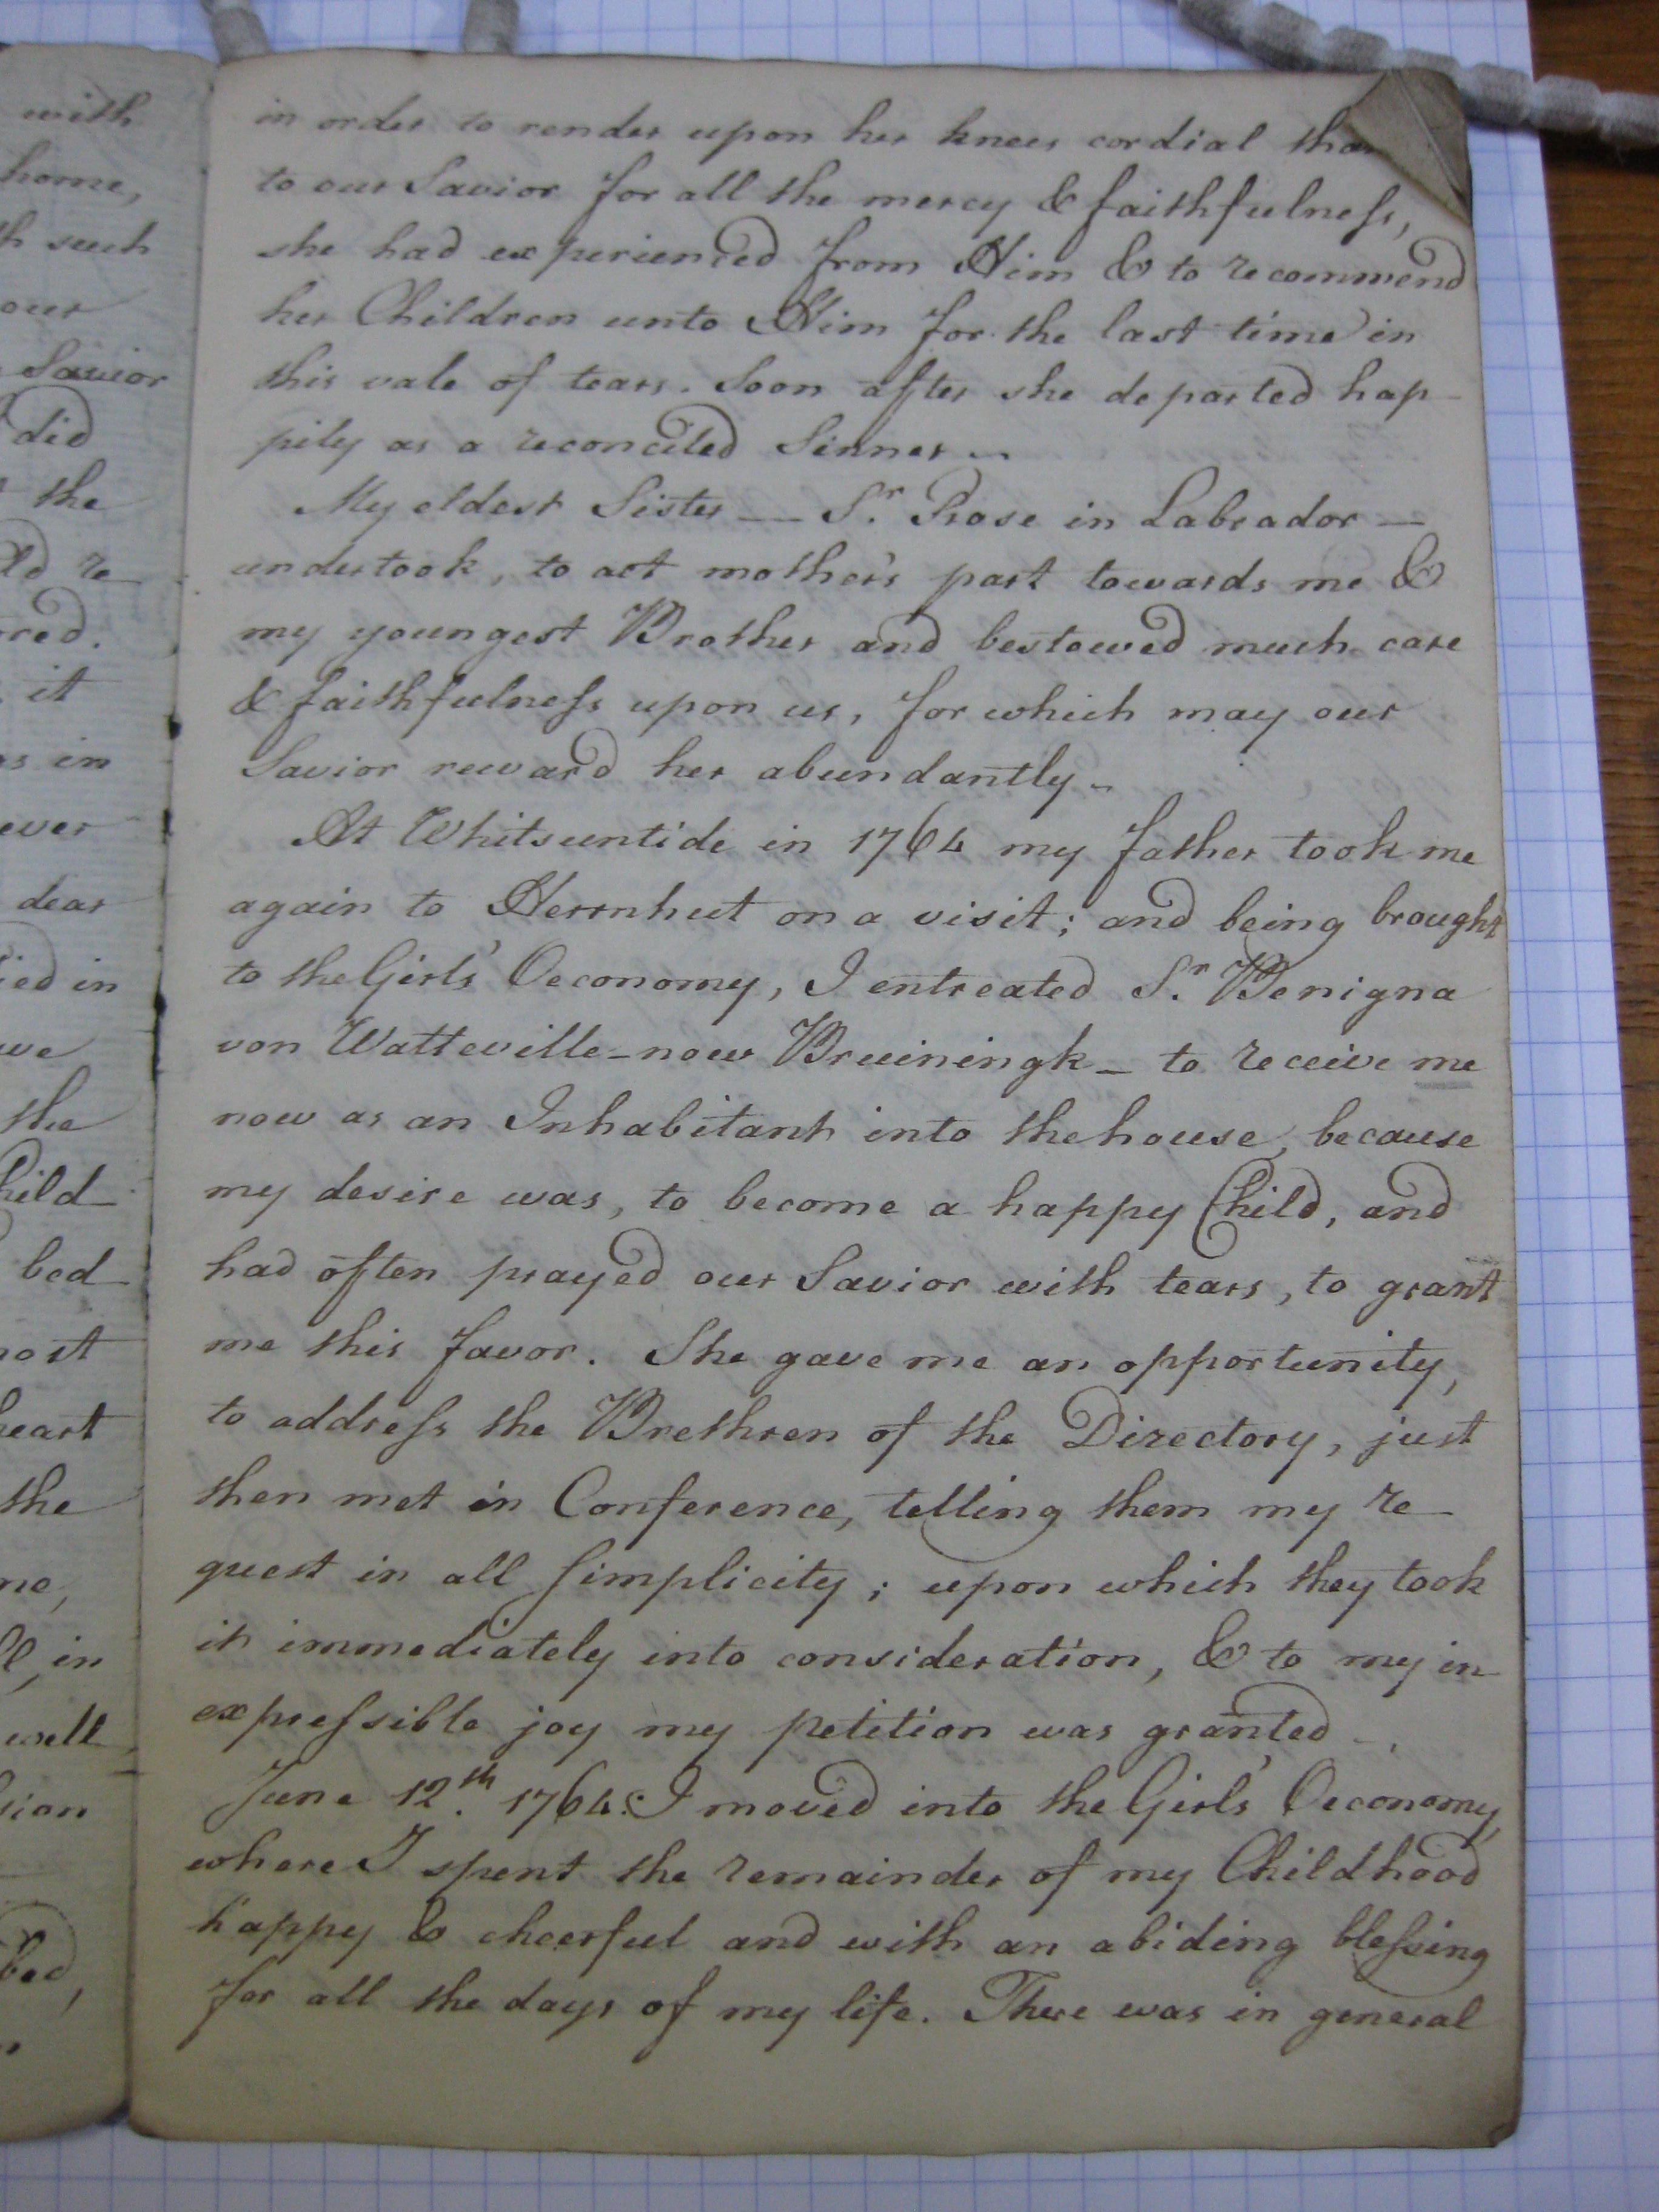 in order to render upon her knees cordial than
to our Savior for all the mercy & faithfulness,
she had experienced from Him & to recommend
her Children unto Him for the last time in
this vale of tears. Soon after she departed hap-
pily as a reconciled Sinner.
My eldest Sister — Sr. Rose in Labrador —
undertook, to act mother's part towards me &
my youngest Brother and bestowed much care
& faithfulness upon us, for which may our
Savior reward her abundantly.
At Whitsuntide in 1764 my father took me
again to Herrnhut on a visit; and being brought
to the Girls' Oeconomy, I entreated Sr. Benigna
von Watteville - now Bruiningk - to receive me
now as an Inhabitant into the house, because
my desire was, to become a happy Child, and
had often prayed our Savior with tears, to grant
me this favor. She gave me an opportunity,
to address the Brethren of the Directory, just
then met in Conference, telling them my re-
quest in all simplicity; upon which they took
it immediately into consideration, & to my in-
expressible joy my petition was granted -.
June 12th. 1764. I moved into the Girls' Oeconomy,
where I spent the remainder of my Childhood
happy & cheerful and with an abiding blessing
for all the days of my life. There was in general
with
home,
such
our
Savior
did
the
re-
red.
it
as in
ever
dear
ied in
we
the
hild
bed
most
heart
the
me,
in
well
sion
bed,